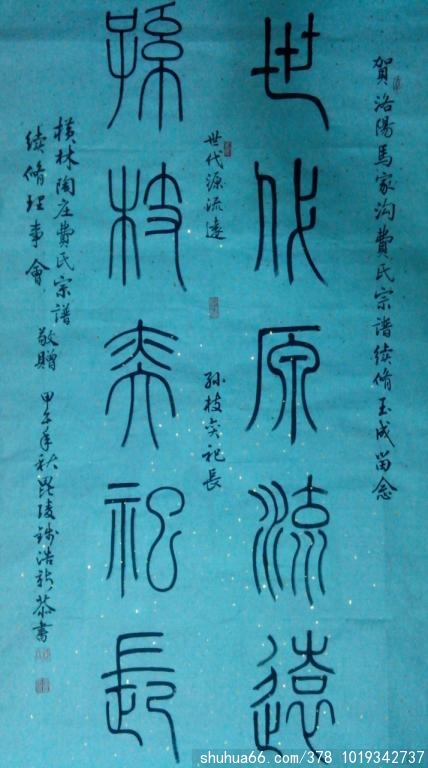 賀洛陽馬家沟費氏宗譜续脩玉成留念
世代原流遠
世代源流遠
孙枝奕祀長
孫枝奕祀長
橫林陶庄費氏宗譜
续脩理事會 敬贈 甲午年秋毘陵
恭書
shuhua66.com/378 1019342737